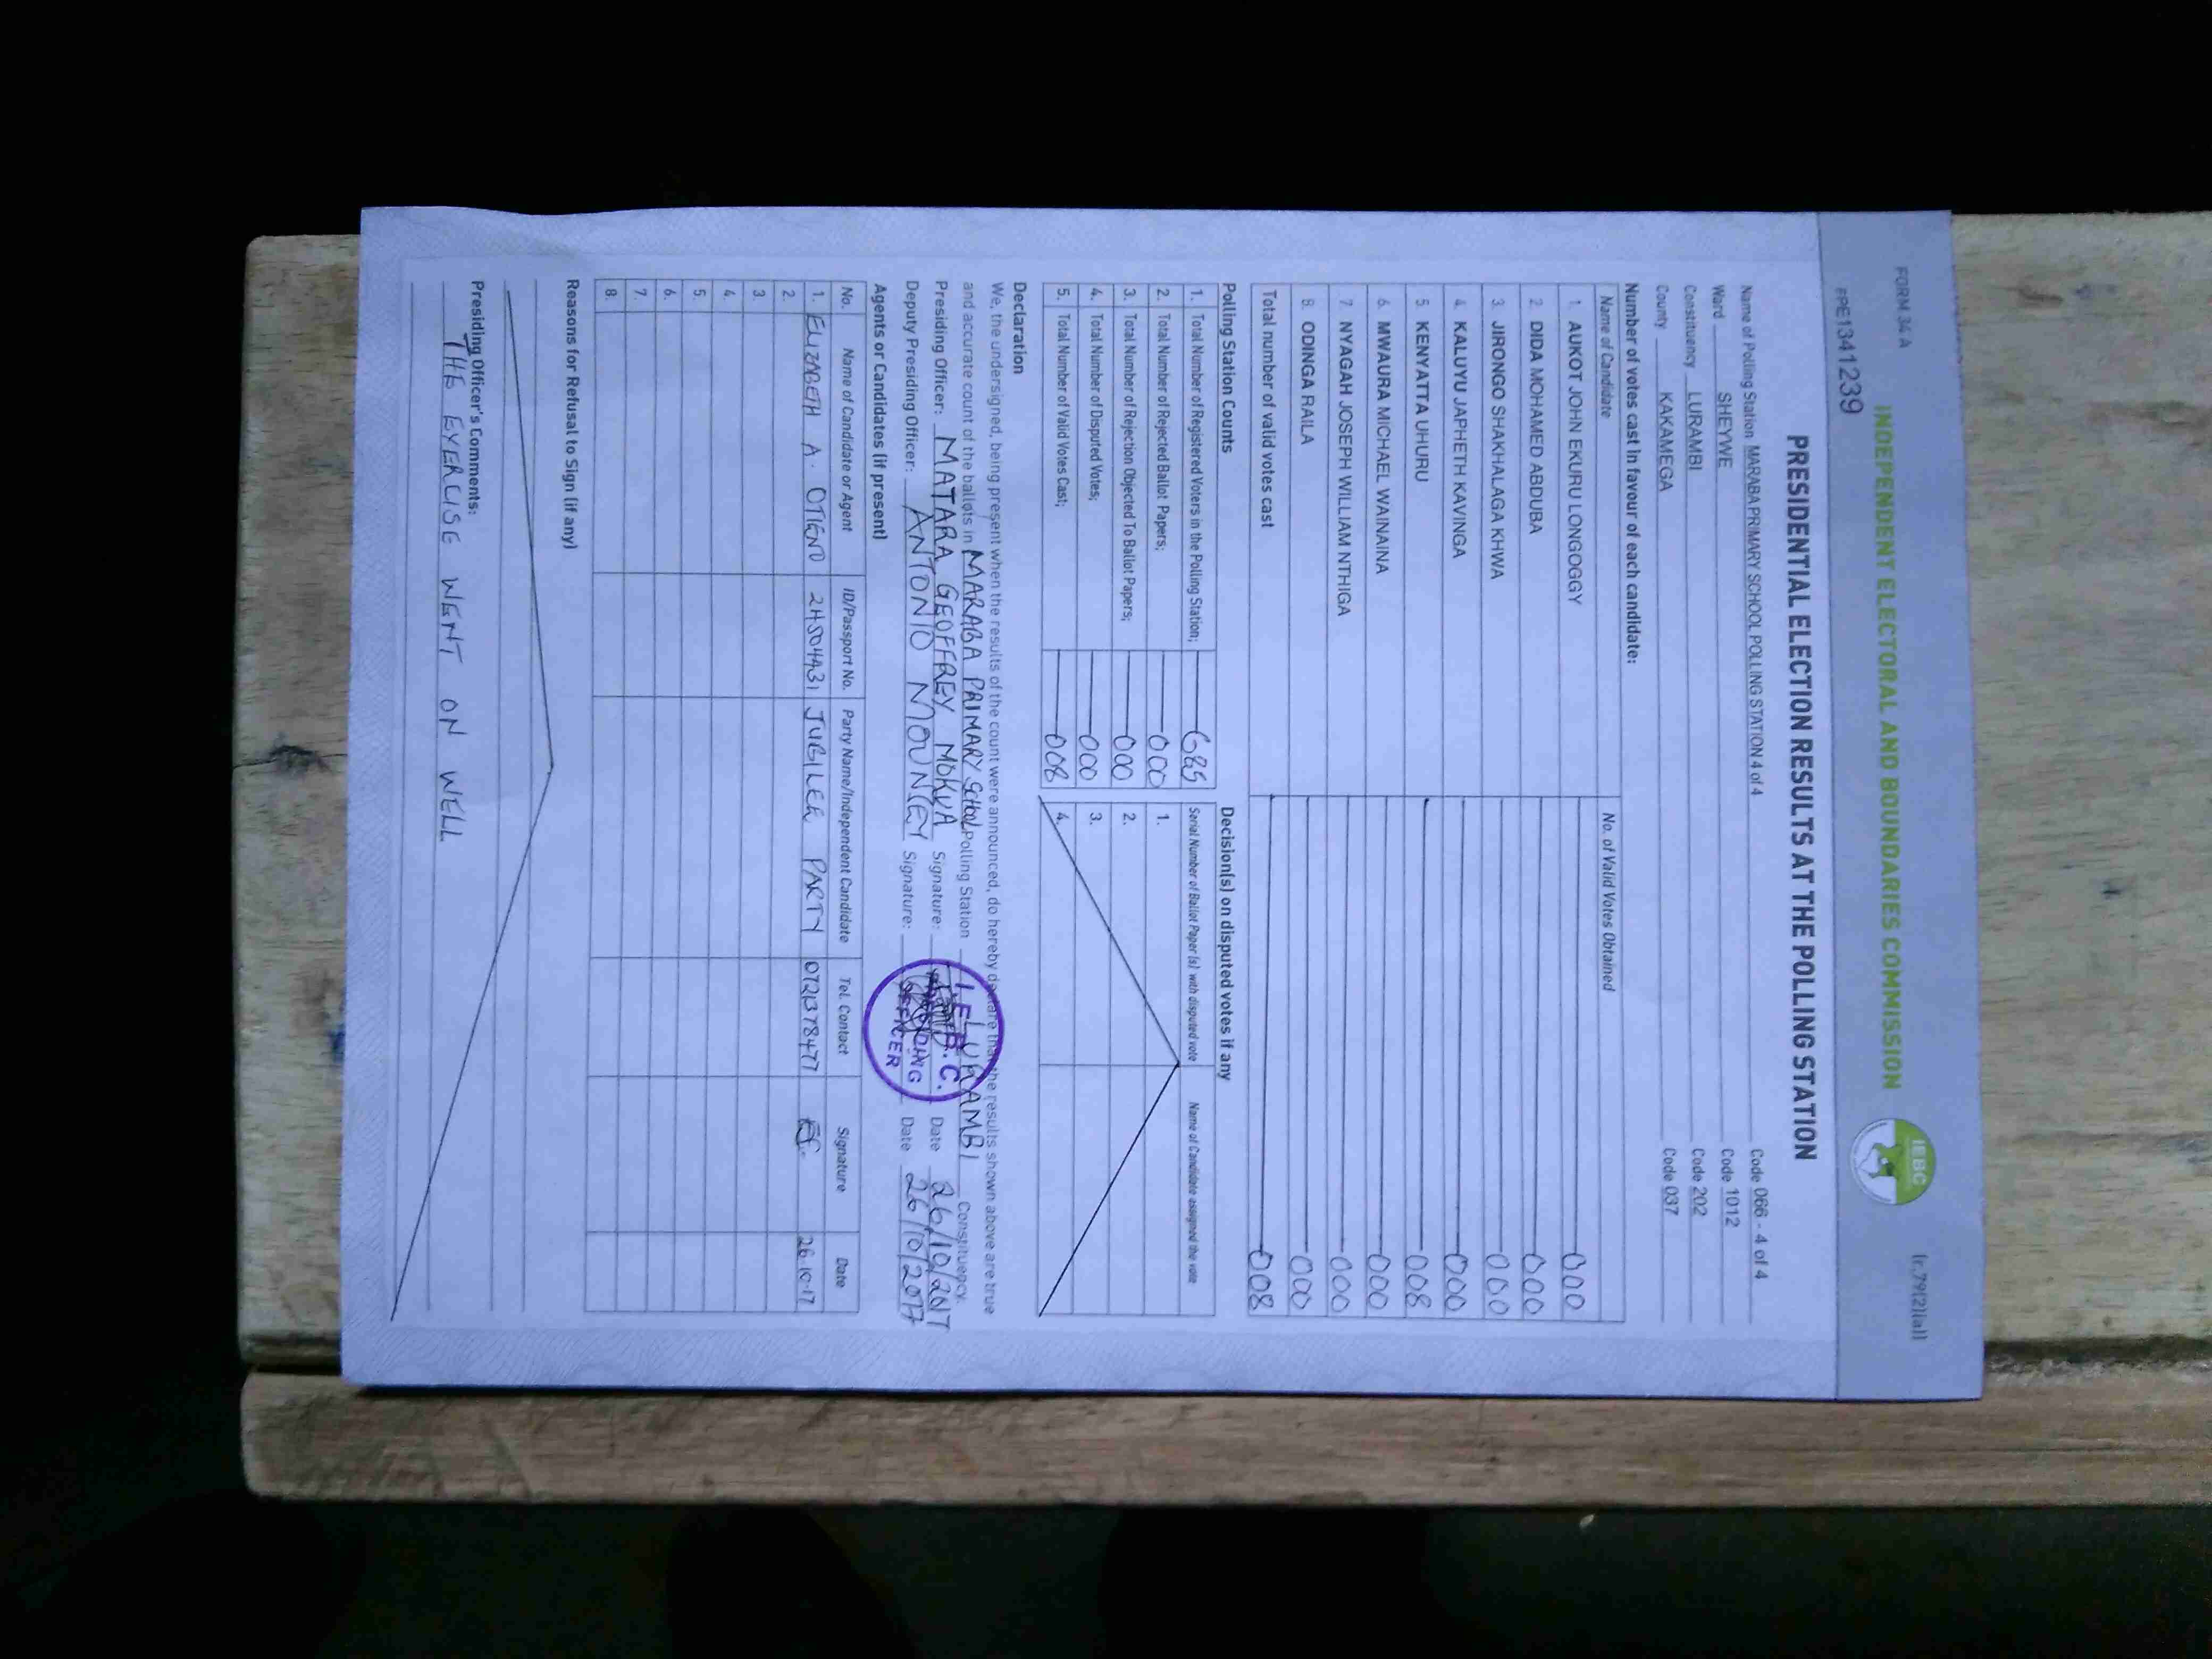 FORM 34A
(r.79(2)(a))
INDEPENDENT ELECTORAL AND BOUNDARIES COMMISSION
IEBC
PRE1341239
PRESIDENTIAL ELECTION RESULTS AT THE POLLING STATION
Name of Polling Station MARABA PRIMARY SCHOOL POLLING STATION 4 of 4 Code 066 - 4 of 4
Ward SHEYWE Code 1012
Constituency LURAMBI Code 202
County KAKAMEGA Code 037
Number of votes cast in favour of each candidate:
Name of Candidate No. of Valid Votes Obtained
1. AUKOT JOHN EKURU LONGOGGY 000
2. DIDA MOHAMED ABDUBA 000
3. JIRONGO SHAKHALAGA KHWA 000
4. KALUYU JAPHETH KAVINGA 000
5. KENYATTA UHURU 008
6. MWAURA MICHAEL WAINAINA 000
7 NYAGAH JOSEPH WILLIAM NTHIGA 000
8. ODINGA RAILA 000
Total number of valid votes cast 008
Polling Station Counts
1. Total Number of Registered Voters in the Polling Station; 685
2. Total Number of Rejected Ballot Papers; 000
3. Total Number of Rejection Objected To Ballot Papers; 000
4. Total Number of Disputed Votes; 000
5. Total Number of Valid Votes Cast; 008
Decision(s) on disputed votes if any
Serial Number of Ballot Paper (s) with disputed vote Name of Candidate assigned the vote
1.
2.
3.
4.
Declaration
We, the undersigned, being present when the results of the count were announced, do hereby declare that the results shown above are true
and accurate count of the ballots in MARABA PRIMARY SCHOOL Polling Station LURAMBI Constituency.
Presiding Officer: MATARA GEOFFREY MOKUA Signature: Date 26/10/2017
Deputy Presiding Officer: ANTONIO Signature: Date 26/10/2017
I.E.B.C.
PRESIDING
OFFICER
Agents or Candidates (if present)
No. Name of Candidate or Agent ID/Passport No. Party Name/Independent Candidate Tel. Contact Signature Date
1. ELIZABETH A. OTIENO 24504931 JUBILEE PARTY 0721378477 26.10.17
2.
3
4.
5.
6.
7.
8.
Reasons for Refusal to Sign (if any)
Presiding Officer's Comments:
THE EYERCISE WENT ON WELL